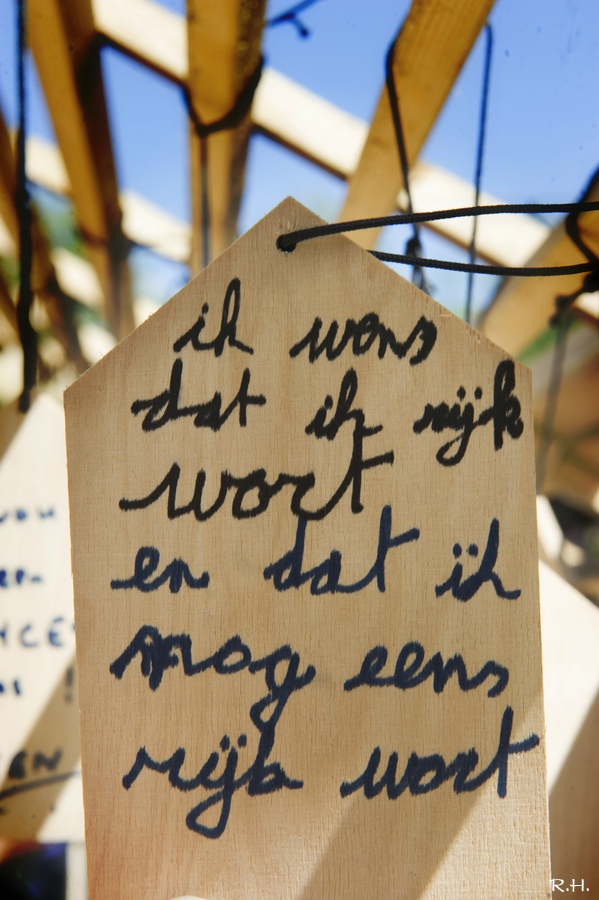 ik wens
dat ik rijk
wort
en dat ik
nog eens
rijk wort
R.H.